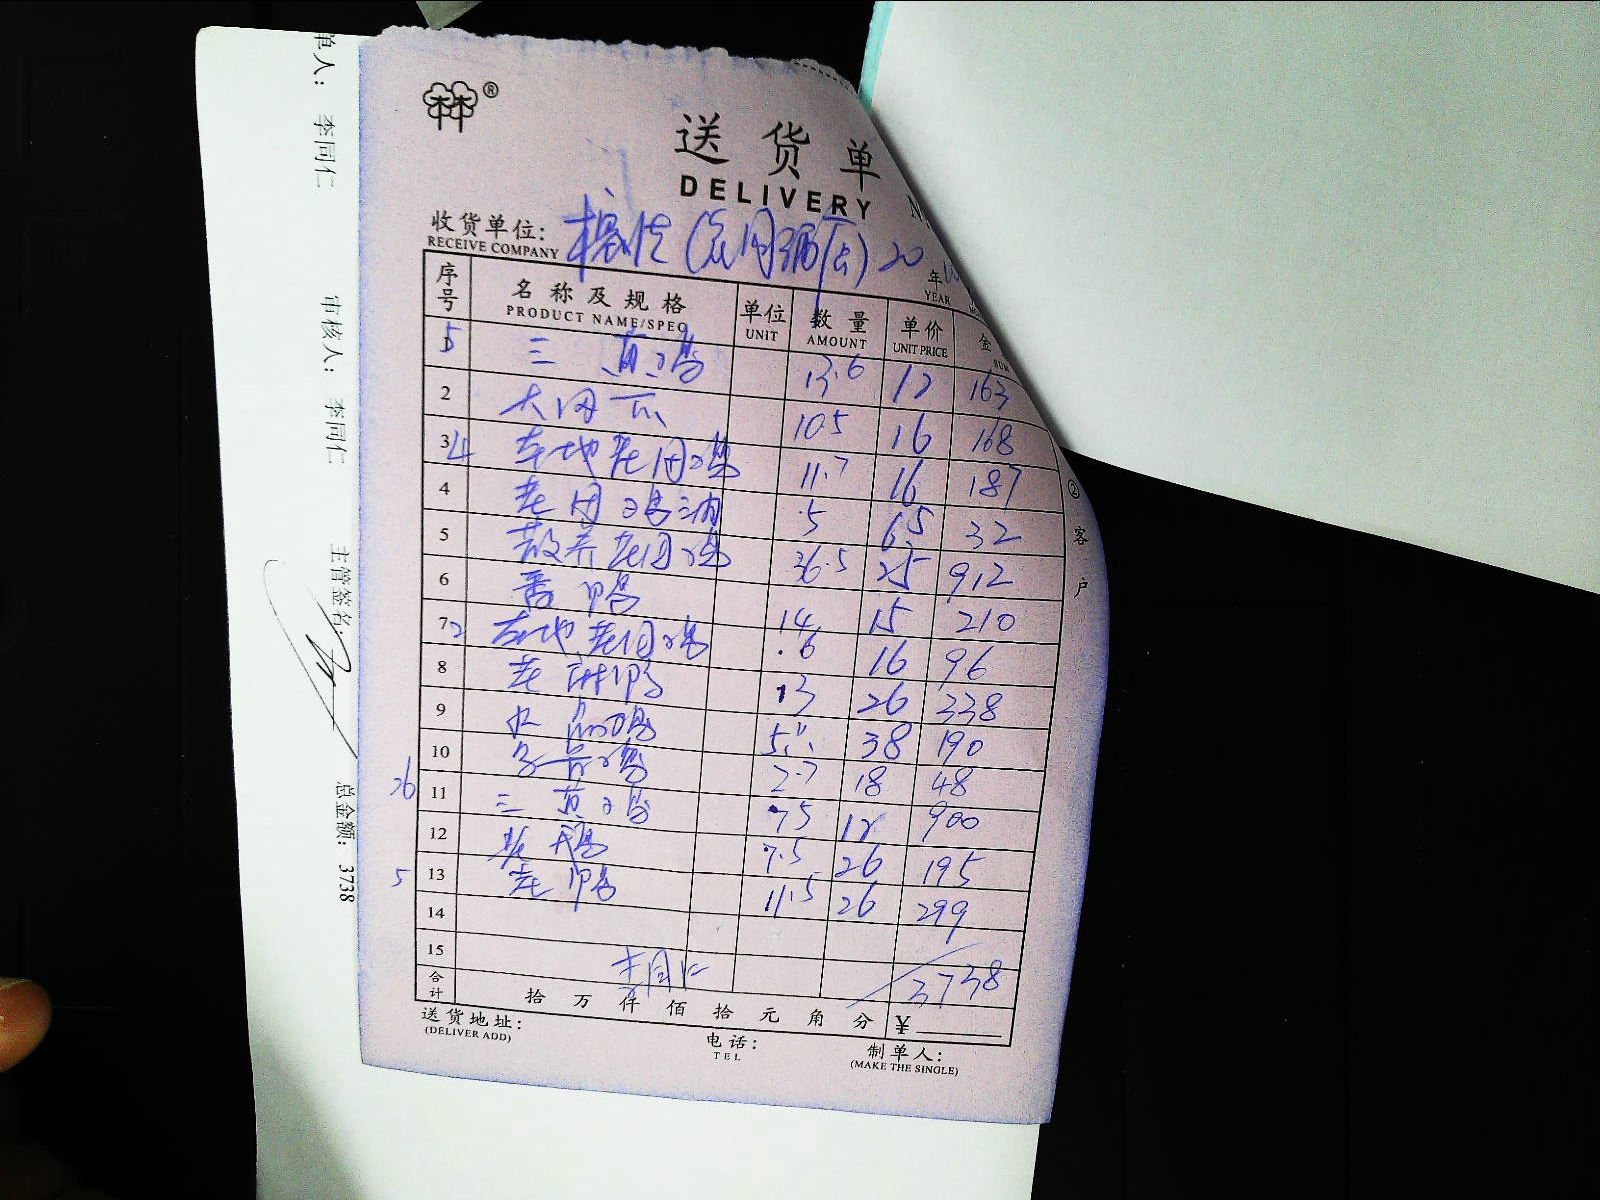 送货单
DELIVERY
收货单位:
RECEIVE COMPANY
20 年
YEAR
序号 名称及规格 单位 数量 单价 金
PRODUCT NAME/SPEC UNIT AMOUNT UNIT PRICE SUM
5 三黄鸡 13.6 12 163
2 10.5 16 168
3 4 本地老母鸡 11.7 16 187
4 老母鸡油 5 6.5 32
5 散养老母鸡 36.5 25 912
6 番鸭 14 15 210
7 2 本地老母鸡 6 16 96
8 老麻鸭 13 26 338
9 5 38 190
10 2.7 18 48
26 11 三黄鸡 75 12 900
12 老鹅 7.5 26 195
5 13 老鸭 11.5 26 299
14
15 李同仁 3738
合计 拾 万 仟 佰 拾 元 角 分 ¥
送货地址:
(DELIVER ADD)
电话:
TEL
制单人:
(MAKE THE SINGLE)
② 客户
单人: 李同仁 审核人: 李同仁 主管签名: 总金额: 3738